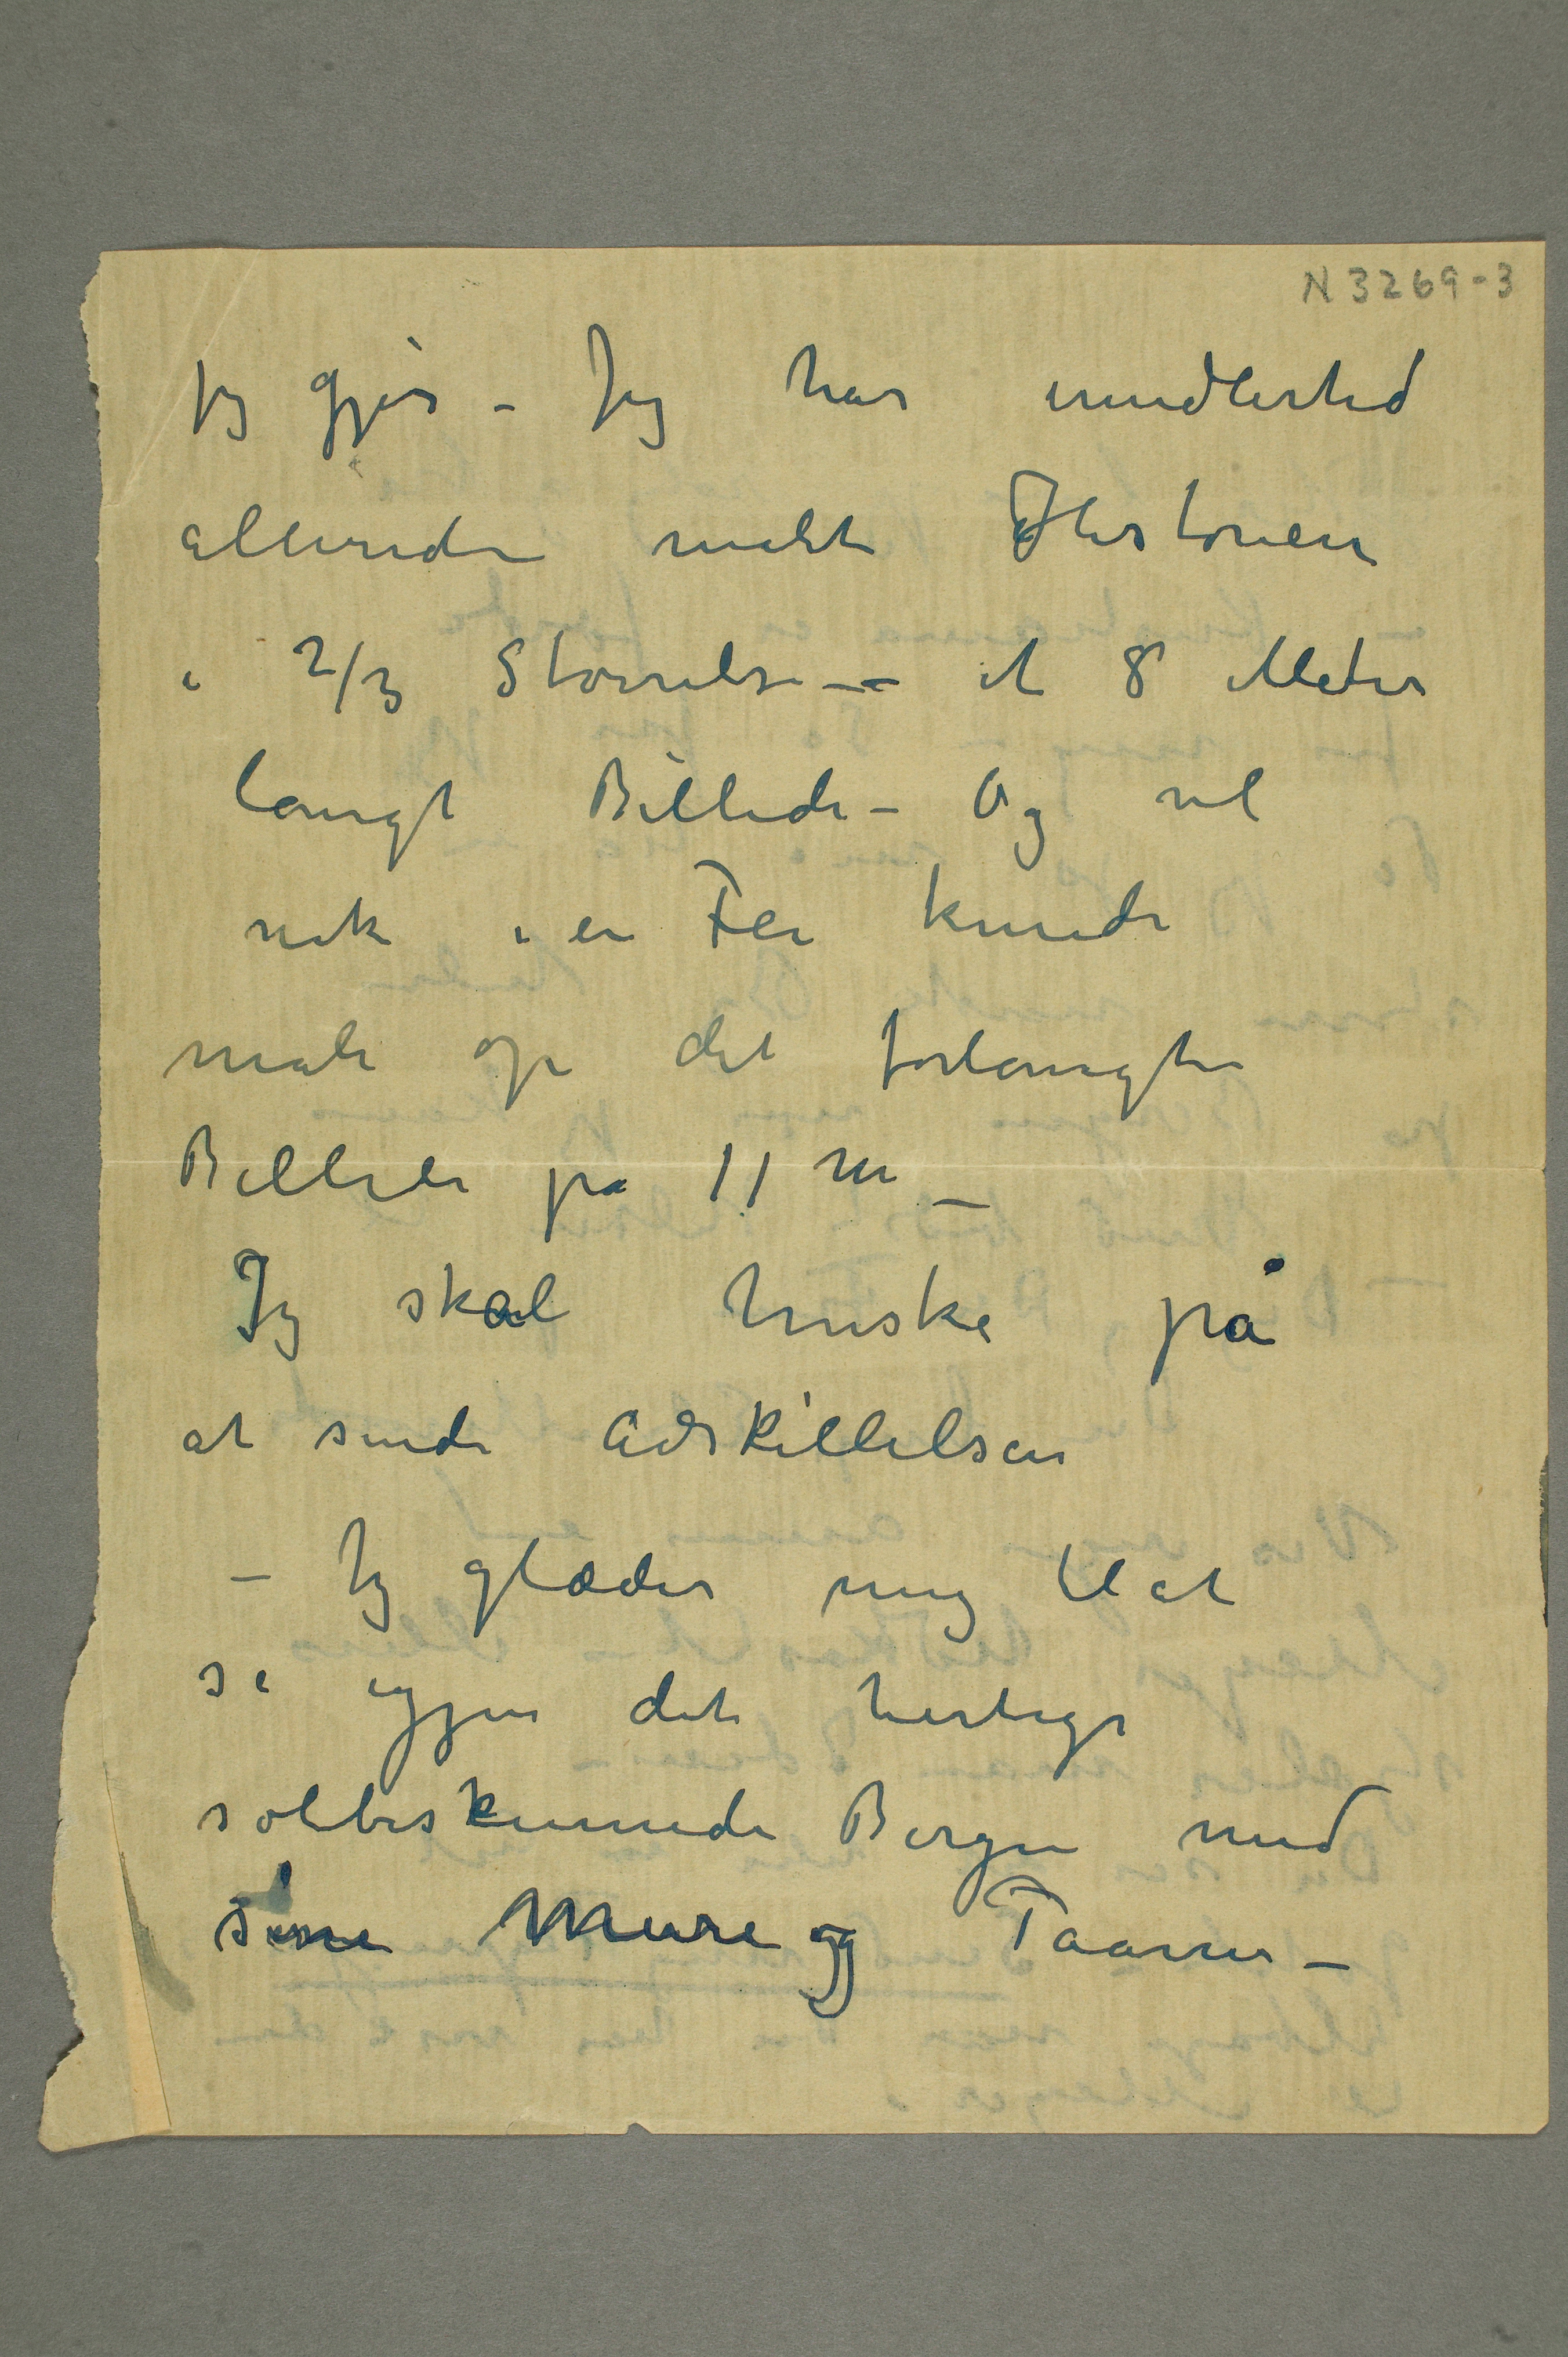 N 3269-3
jeg gjør – Jeg har imidlertid
allerede malt Historien
i 2/3 Størrelse – et 8 Meter
langt Billede – Og vil
nok i en Fei kunde
male op det forlangte
Billede på 11 m –
Jeg skal huske på
at sende Adskillelsen
– Jeg glæder mig til at
se igjen det herlige
solbeskinnede Bergen med
sine Mure og Taarne –